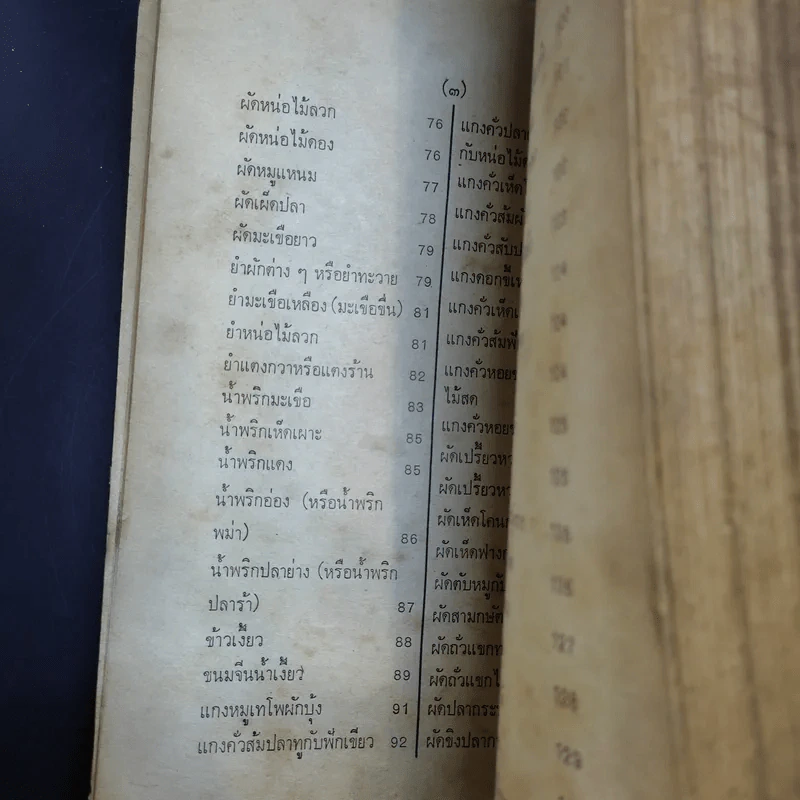 (๓)
ผัดหน่อไม้ลวก 76
ผัดหน่อไม้ดอง 76
ผัดหมูแหนม 77
ผัดเผ็ดปลา 78
ผัดมะเขือยาว 79
ยำผักต่าง ๆ หรือยำทะวาย 79
ยำมะเขือเหลือง (มะเขือขื่น) 81
ยำหน่อไม้ลวก 81
ยำแตงกวาหรือแตงร้าน 82
น้ำพริกมะเขือ 83
น้ำพริกเห็ดเผาะ 85
น้ำพริกแดง 85
น้ำพริกอ่อง (หรือน้ำพริก
พม่า) 86
น้ำพริกปลาย่าง (หรือน้ำพริก
ปลาร้า) 87
ข้าวเงี้ยว 88
ขนมจีนน้ำเงี้ยว 89
แกงหมูเทโพผักบุ้ง 91
แกงคั่วส้มปลาทูกับฟักเขียว 92
แกงคั่วปลา
กับหน่อไม้
แกงคั่วเห็ด
แกงคั่วส้ม
แกงคั่วสับ
แกงดอกขี้
แกงคั่วเห็ด
แกงคั่วส้ม
แกงคั่วหอย
ไม้สด
แกงคั่วหอย
ผัดเปรี้ยว
ผัดเปรี้ยว
ผัดเห็ดโคน
ผัดเห็ดฟาง
ผัดตับหมู
ผัดสามกษัต
ผัดถั่วแขก
ผัดถั่วแขก
ผัดปลากระ
ผัดขิงปลา